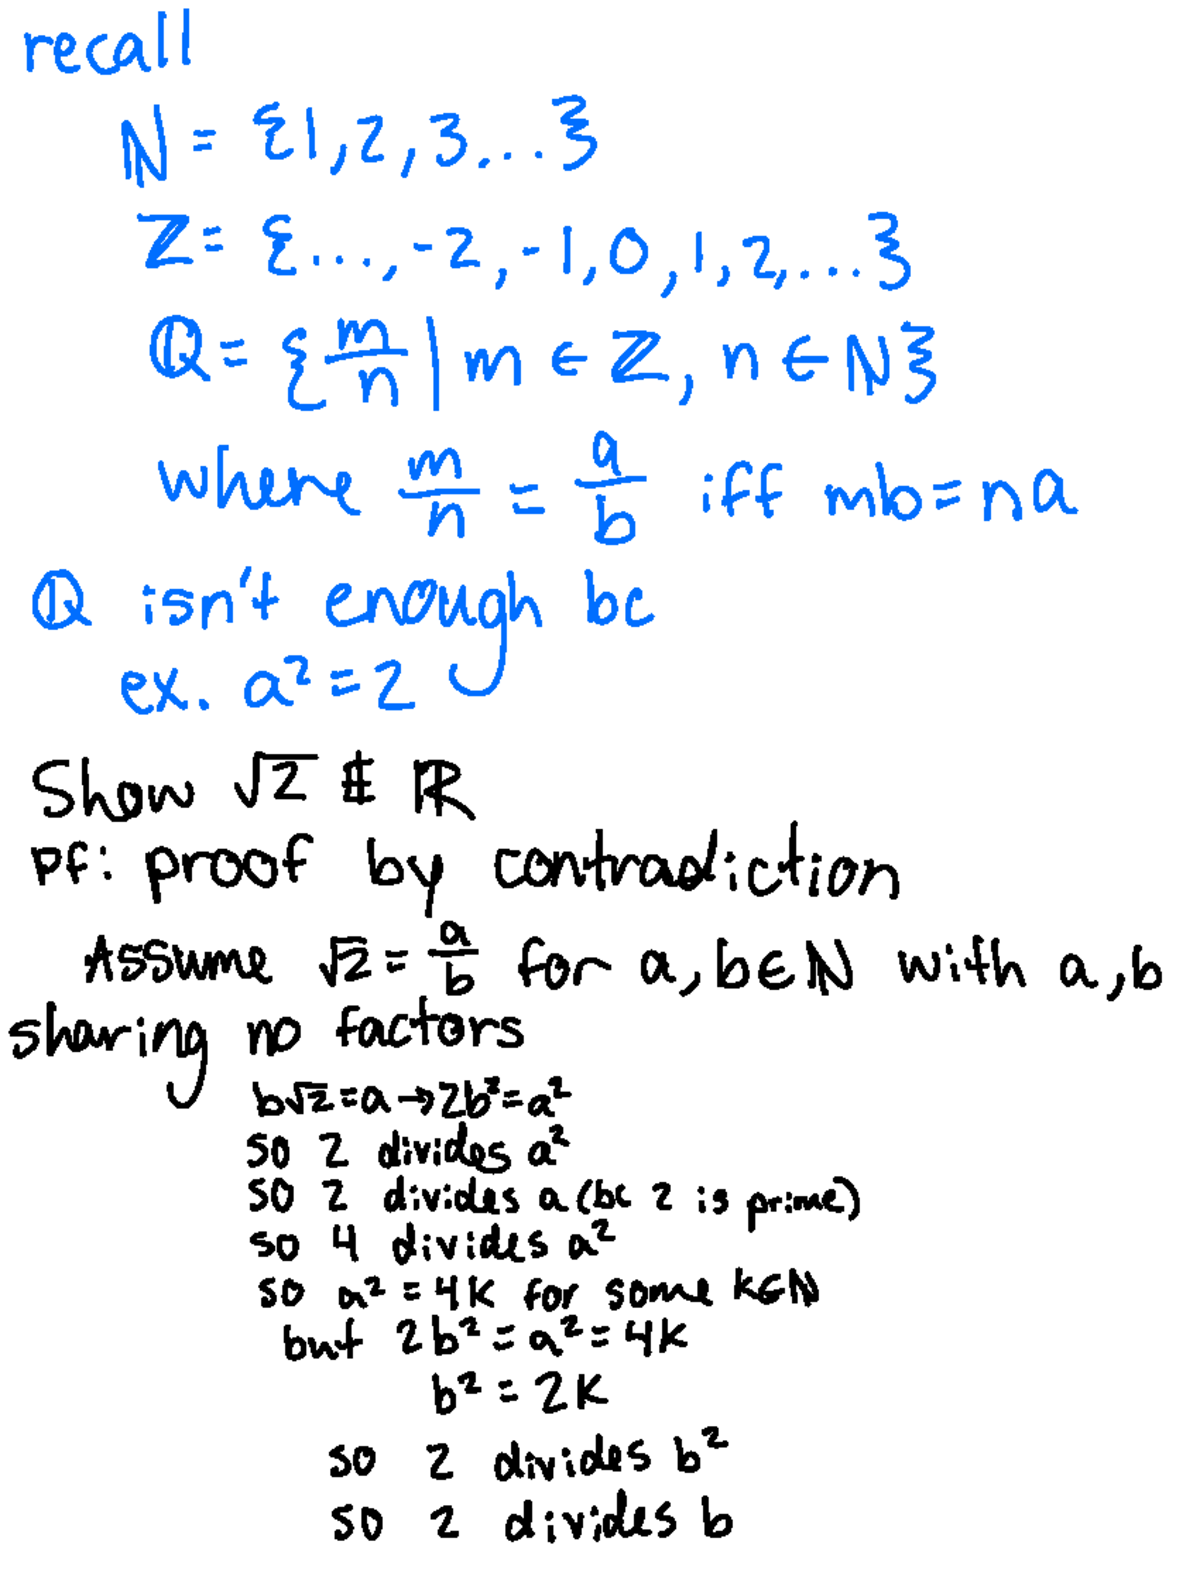 recall
ℕ = {1,2,3...}
ℤ = {...,-2,-1,0,1,2,...}
ℚ = {m/n | m ∈ ℤ, n ∈ ℕ}
where m/n = a/b iff mb=na
ℚ isn't enough bc
ex. a²=2
Show √2 ∉ ℝ
Pf: proof by contradiction
Assume √2 = a/b for a,b∈ℕ with a,b
sharing no factors
b√2=a→2b²=a²
so 2 divides a²
so 2 divides a (bc 2 is prime)
so 4 divides a²
so a² = 4k for some k∈ℕ
but 2b² = a² = 4k
b² = 2k
so 2 divides b²
so 2 divides b